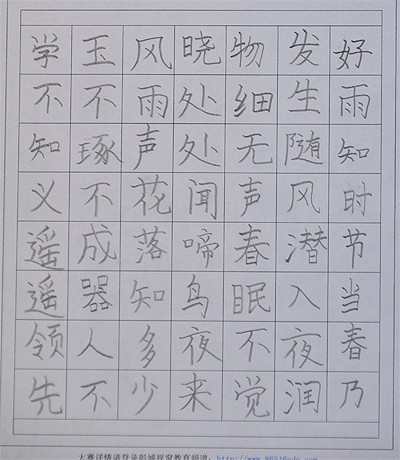 好雨知时节当春乃
发生随风潜入夜润
物细无声春眠不觉
晓处处闻啼鸟夜来
风雨声花落知多少
玉不琢不成器人不
学不知义遥遥领先
大赛详情请登录彭城视窗教育频道：